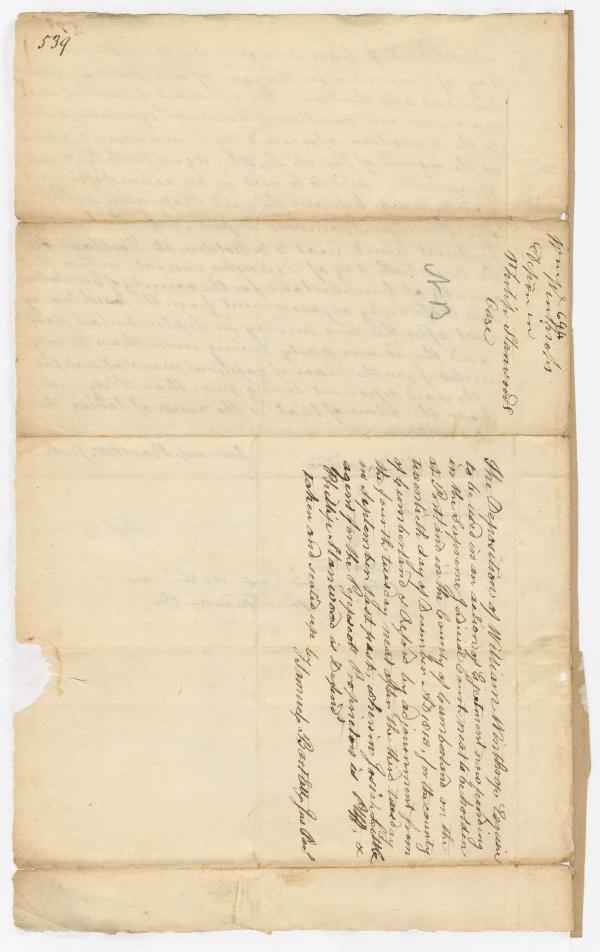 539
Wm. Winthrop's
694
Depon in
Philip Stanwoods
Case
NB
The Deposition of William Winthrop Esquire
to be used in an action of Ejectment now pending
in the Supreme Judicial Court next to be holden
at Portland in the County of Cumberland on the
twentieth day of December AD 1813, for the county
of Cumberland & Oxford by adjournment from
the fourth tuesday next after the third tuesday
in September last past, wherein Josiah Little
agent for the Pejepscott Proprietors is Plff. &
Philip Stanwood is Defend
taken and sealed up by
Samuel Bartlett Jus Pac